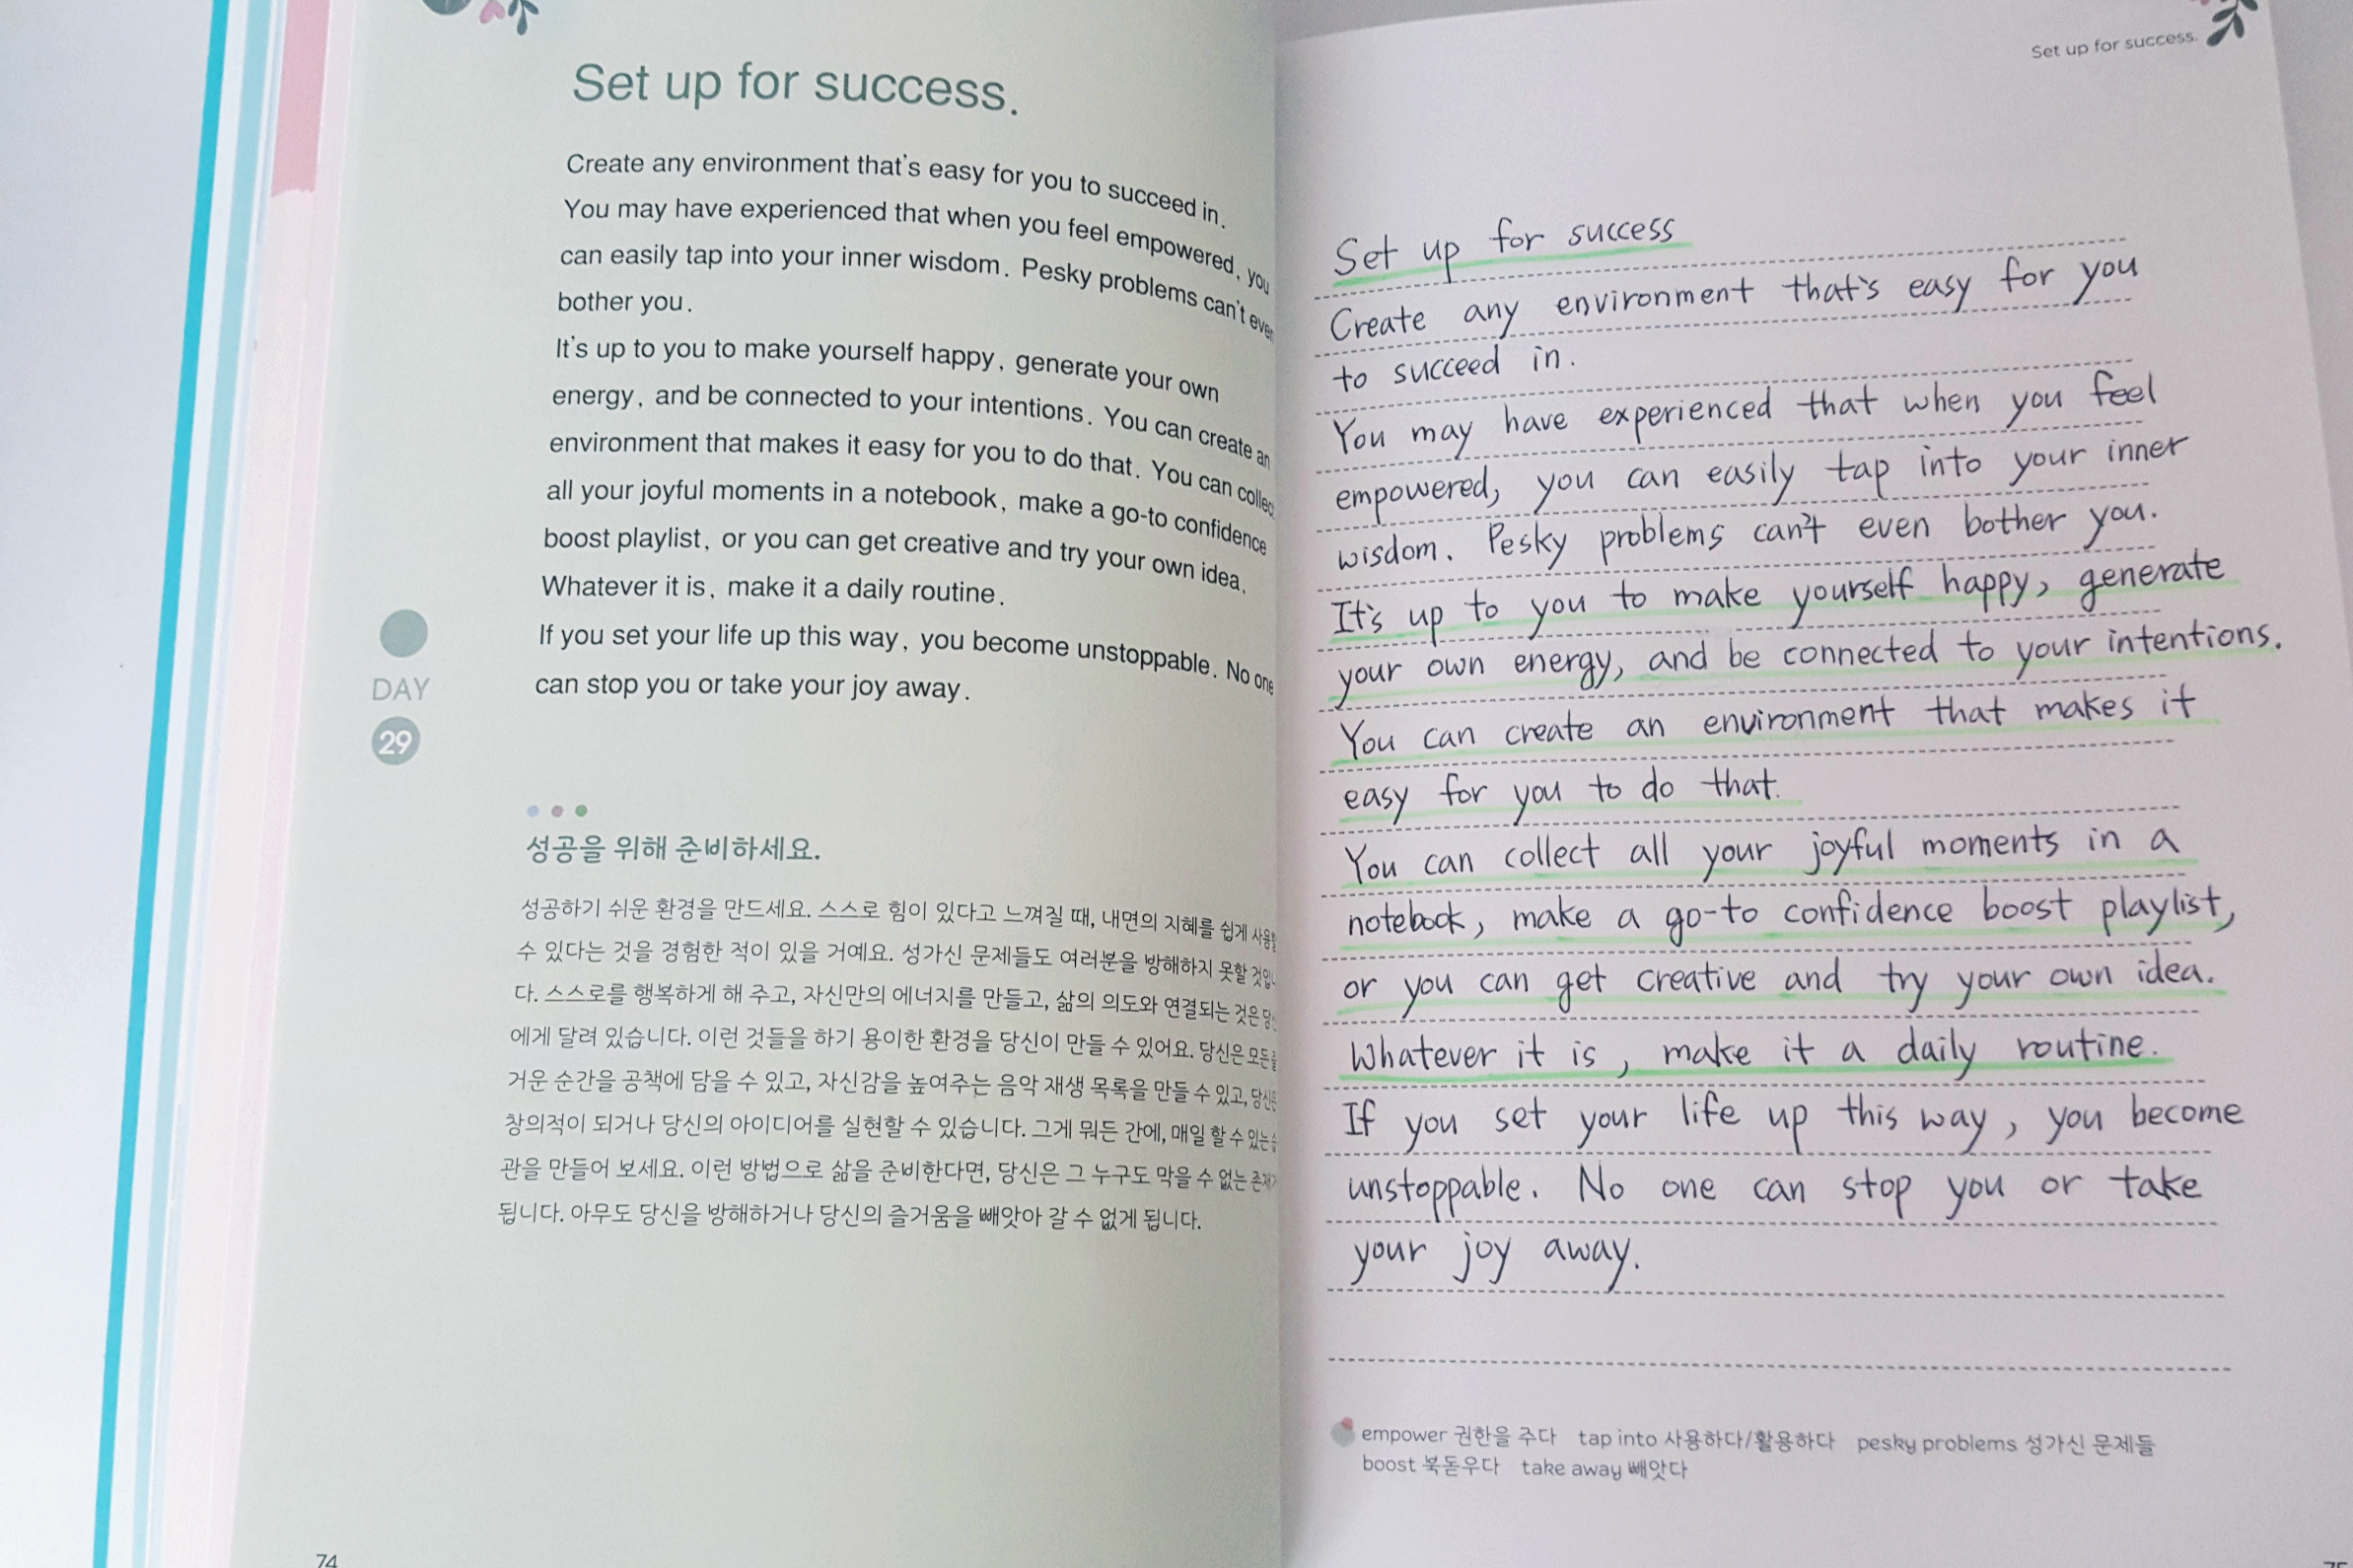 Set up for success.
Create any environment that's easy for you to succeed in.
You may have experienced that when you feel empowered, you
can easily tap into your inner wisdom. Pesky problems can't even
bother you.
It's up to you to make yourself happy, generate your own
energy, and be connected to your intentions. You can create an
environment that makes it easy for you to do that. You can collect
all your joyful moments in a notebook, make a go-to confidence
boost playlist, or you can get creative and try your own idea.
Whatever it is, make it a daily routine.
If you set your life up this way, you become unstoppable. No one
can stop you or take your joy away.
DAY
29
성공을 위해 준비하세요.
성공하기 쉬운 환경을 만드세요. 스스로 힘이 있다고 느껴질 때, 내면의 지혜를 쉽게
수 있다는 것을 경험한 적이 있을 거예요. 성가신 문제들도 여러분을 방해하지 못할
다. 스스로를 행복하게 해 주고, 자신만의 에너지를 만들고, 삶의 의도와 연결되는 것은
에게 달려 있습니다. 이런 것들을 하기 용이한 환경을 당신이 만들 수 있어요. 당신은 모든
거운 순간을 공책에 담을 수 있고, 자신감을 높여주는 음악 재생 목록을 만들 수 있고,
창의적이 되거나 당신의 아이디어를 실현할 수 있습니다. 그게 뭐든 간에, 매일 할 수 있는
관을 만들어 보세요. 이런 방법으로 삶을 준비한다면, 당신은 그 누구도 막을 수 없는
됩니다. 아무도 당신을 방해하거나 당신의 즐거움을 빼앗아 갈 수 없게 됩니다.
74
Set up for success.
Set up for success
Create any environment that's easy for you
to succeed in.
You may have experienced that when you feel
empowered, you can easily tap into your inner
wisdom. Pesky problems can't even bother you.
It's up to you to make yourself happy, generate
your own energy, and be connected to your intentions.
You can create an environment that makes it
easy for you to do that.
You can collect all your joyful moments in a
notebook, make a go-to confidence boost playlist,
or you can get creative and try your own idea.
Whatever it is, make it a daily routine.
If you set your life up this way, you become
unstoppable. No one can stop you or take
your joy away.
empower 권한을 주다 tap into 사용하다/활용하다 pesky problems 성가신 문제들
boost 북돋우다 take away 빼앗다